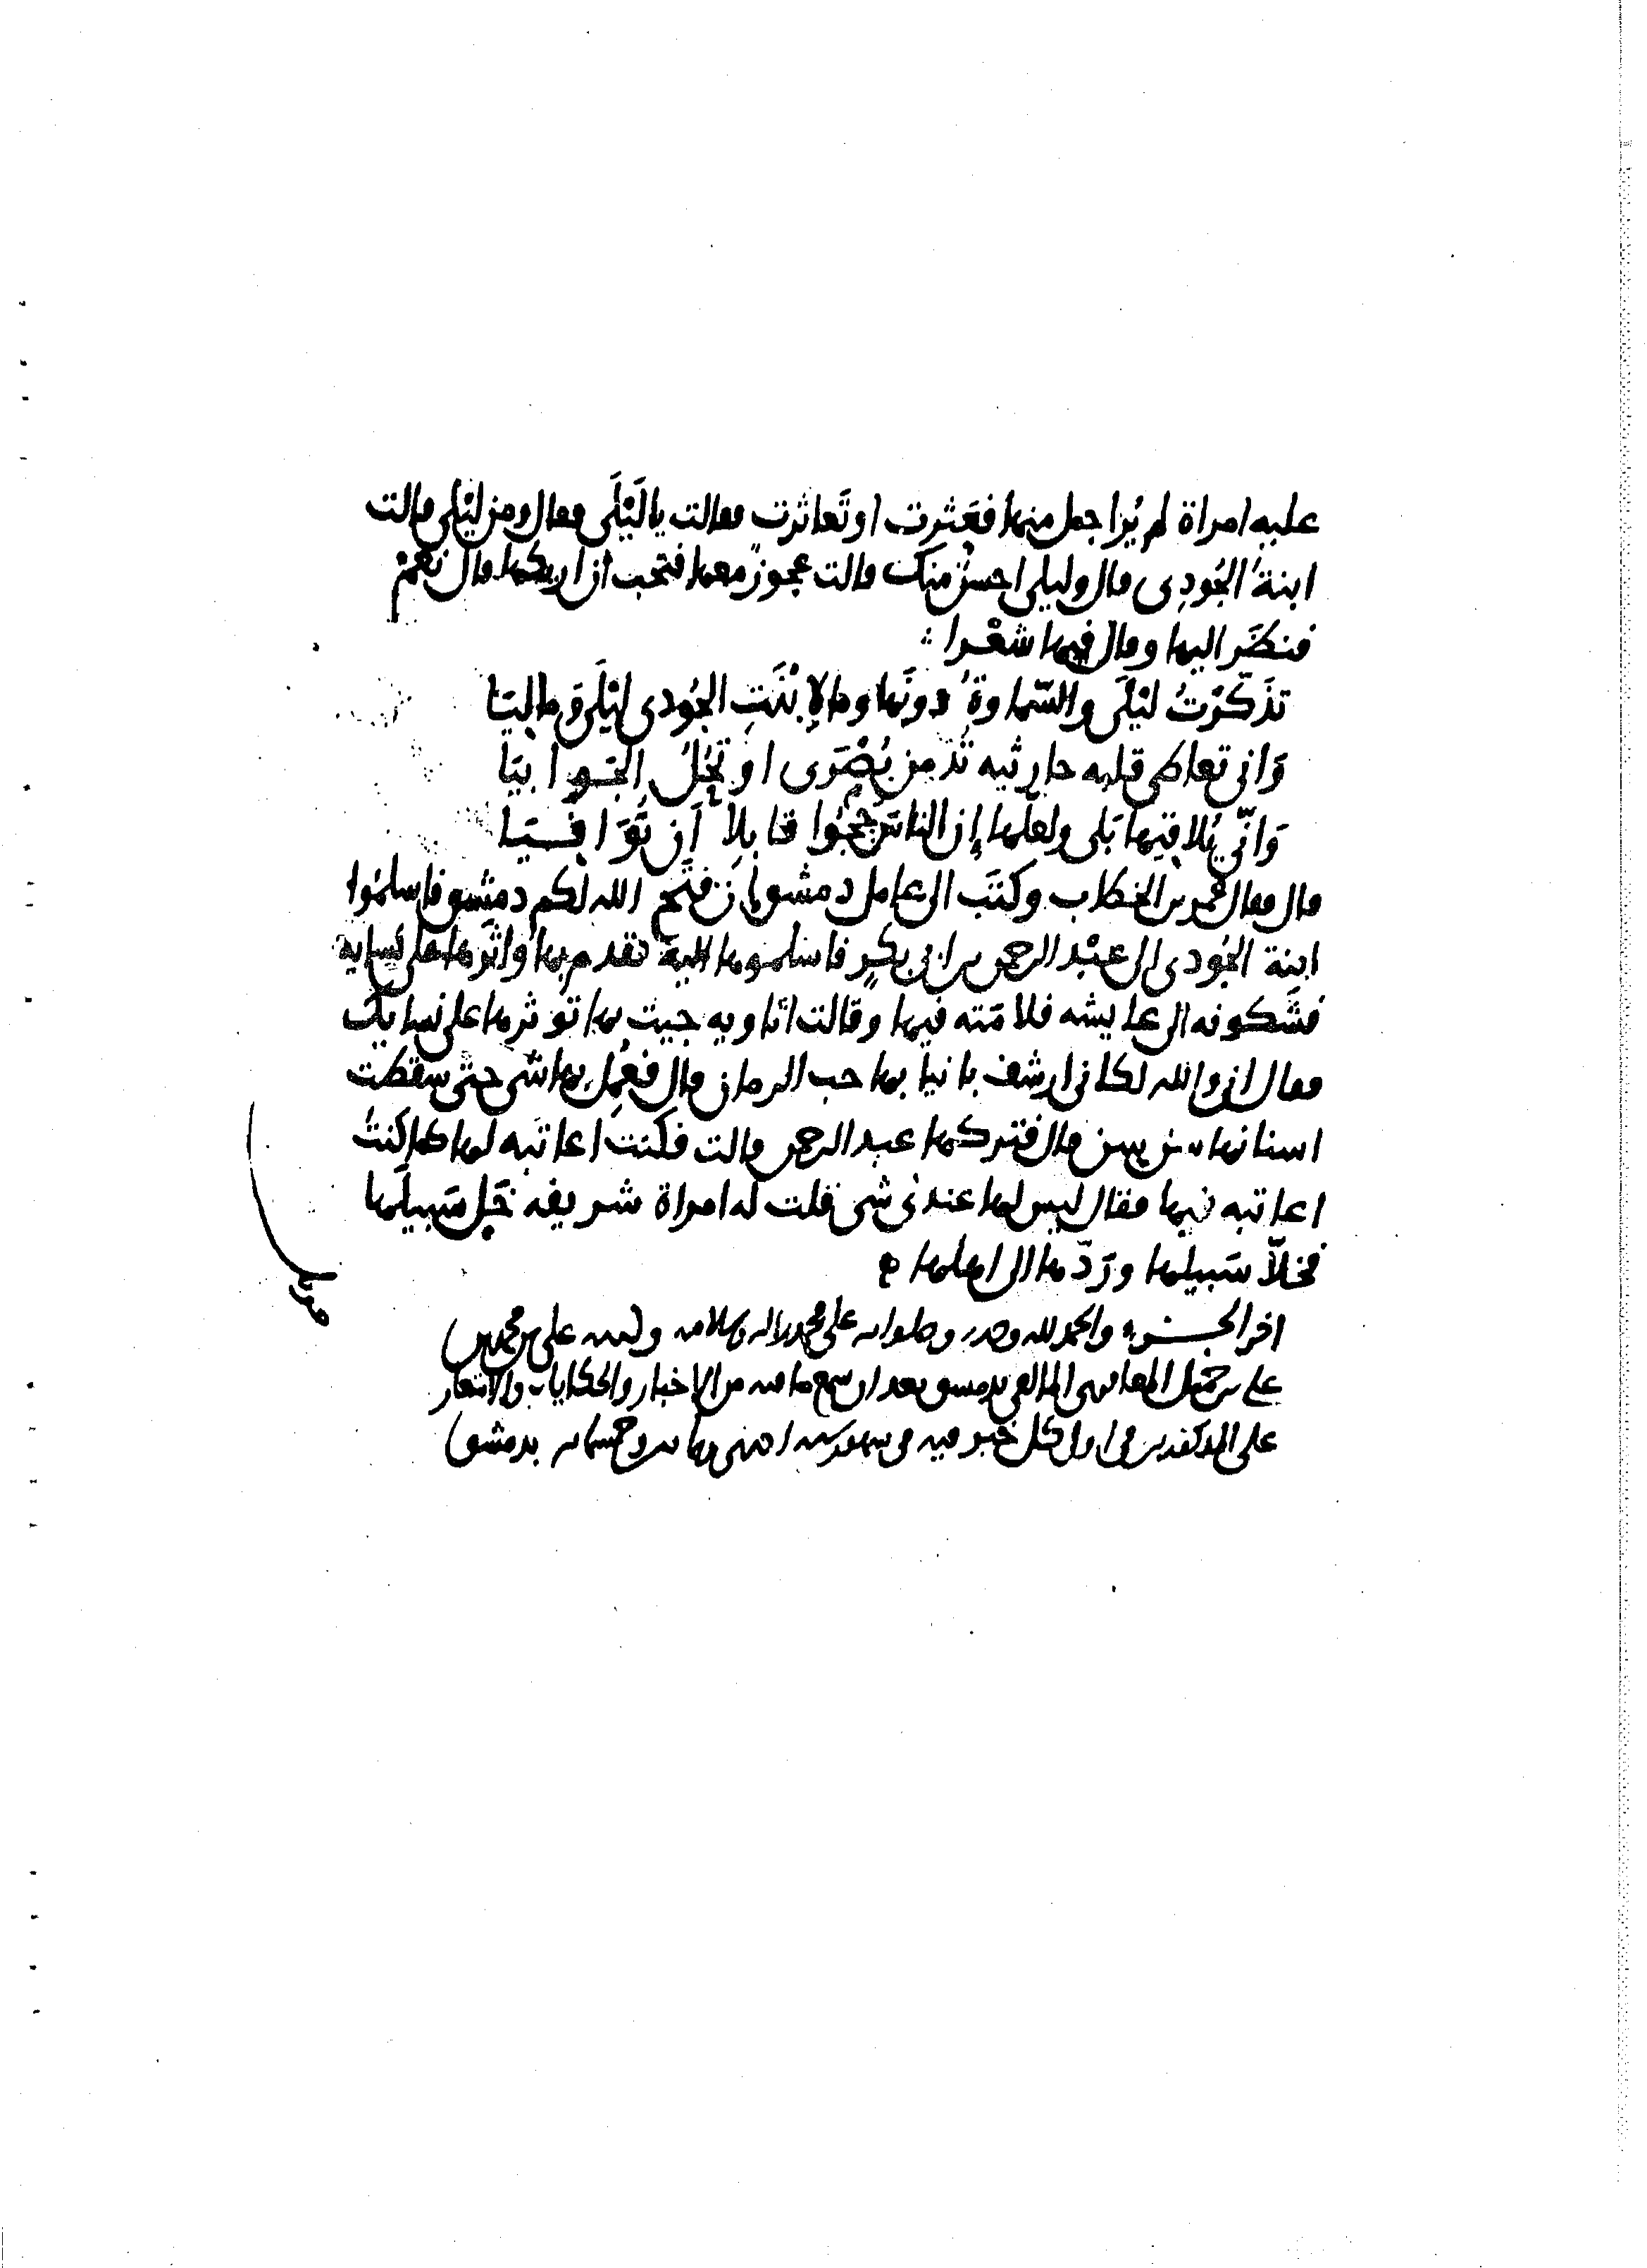 عليه امراة لم يُرَ اجمل منها فعَثرت او تَعاثرت فقالت يا لَيْلَى فقال ومن ليْلى قالت
ابنةُ الجُودِى قال وليلى احسنُ منك قالت عجوزٌ معها فتحب ان اريكها قال نعمْ
فنظَر اليها وقال فيها شعْرا
تذَكرْتُ ليْلَى والسّماوةُ دونَها وما لاِبْنَتِ الجُودى ليْلَى وَماليَا
وَانى تعاطى قلبه حارثيه تدمن بُصْرَى او تحُلُ الجَوابيَا
وَانّى يُلاقيها بَلى ولعلّها إن الناسُ حَجُّوا قابلاً اَن تُوَافيَا
قال فقال عمر بن الخطاب وكتَب الى عامل دمشق ان فتَح الله لكم دمشق فاسلمُوا
ابنة الجُودى الى عبْد الرحمن بن ابى بكرٍ فاسلموها اليه فقدم بها واثَرها على نسايه
فشَكونه الى عايشه فلامَته فيها وقالت جيت بها توثرها على نسايك
فقال انى والله لكانى ارشف بانيابها حب الرمان قال فعُمِل بها شى حتى سقطت
اسنانها قال فتركها عبد الرحمن قالت فكنت اعاتبه لها كما كنتُ
اعاتبه فيها فقال ليس لها عندى شى قلت له امراة شريفه خَل سَبيلَها
فخلاّ سَبيلها ورَدّها الى اهلها
اخر الجزء والحمد لله وحده وصلواته على محمد واله وسلامه وكتبه على بن محمد بن
على بن جميل المعافرى المالقى بدمشق بعد ان سمع ما فيه من الاخبار والحكايات والاشعار
على فى اول كل خبر فيه فى شهور سنه وخمسمايه بدمشق